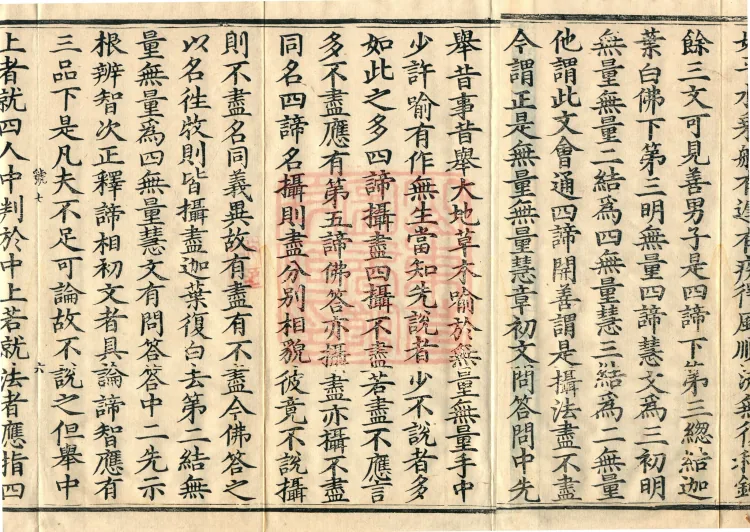 餘三文可見善男子是四諦下第三緫結迦
葉白佛下第三明無量四諦慧文為三初明
無量無量二結為四無量慧三結為二無量
他謂此文會通四諦開善謂是攝法盡不盡
今謂正是無量無量慧章初文問答問中先
舉昔事昔舉大地草木喻於無量無量手中
少許喻有作無生當知先說者少不說者多
如此之多四諦攝盡四攝不盡若盡不應言
多不盡應有第五諦佛答亦攝盡亦攝不盡
同名四諦名攝則盡分別相貌彼竟不說攝
則不盡名同義異故有盡有不盡今佛答之
以名徃收則皆攝盡迦葉復白去第二結無
量無量為四無量慧文有問答答中二先示
根辨智次正釋諦相初文者具論諦智應有
三品下是凡夫不足可論故不說之但舉中
六
上者就四人中判於中上若就法者應指四